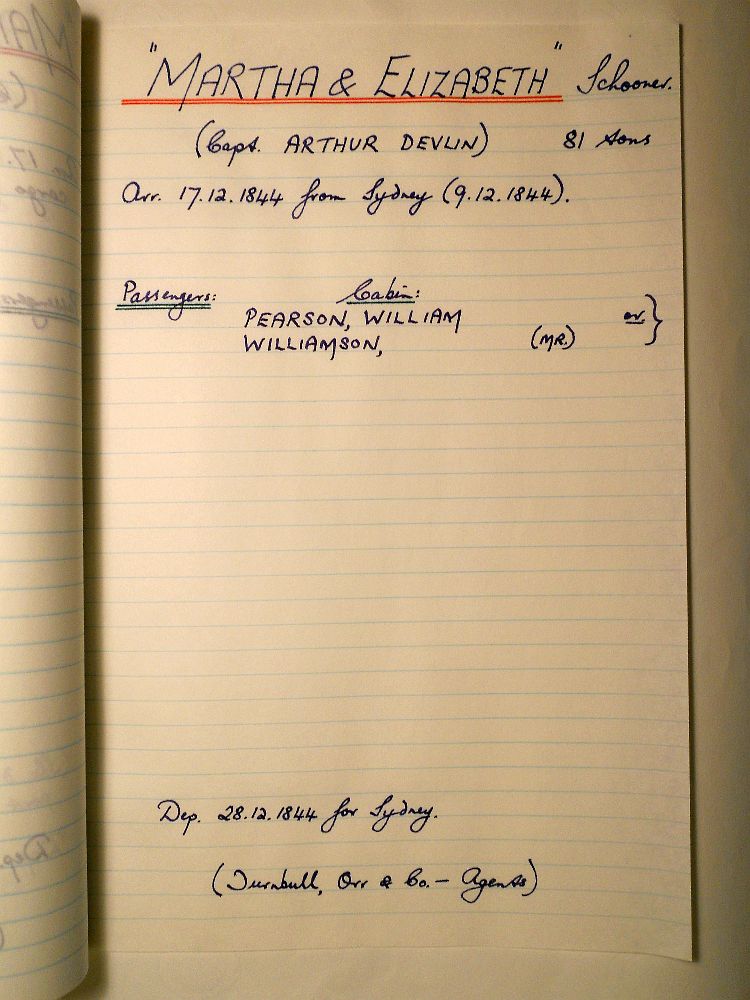 "MARTHA & ELIZABETH" Schooner.
(Capt. ARTHUR DEVLIN) 81 tons
Arr. 17.12.1844 from Sydney (9.12.1844).
Passengers: Cabin:
PEARSON, WILLIAM
WILLIAMSON, (MR.) or. }
Dep. 28.12.1844 for Sydney.
(Turnbull, Orr & Co. - Agents)